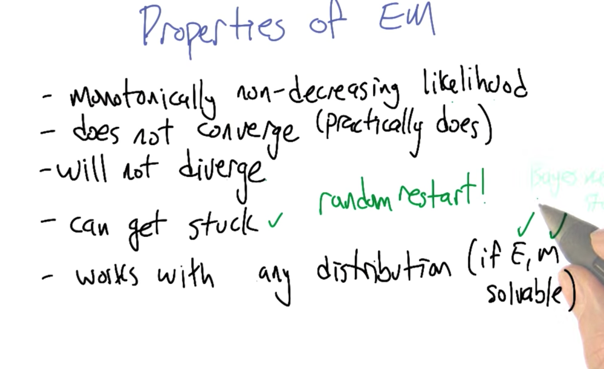 Properties of EM
- monotonically non-decreasing likelihood
- does not converge (practically does)
- will not diverge
- can get stuck ✓ random restart!
Bayes
- works with any distribution (if E, M
solvable)